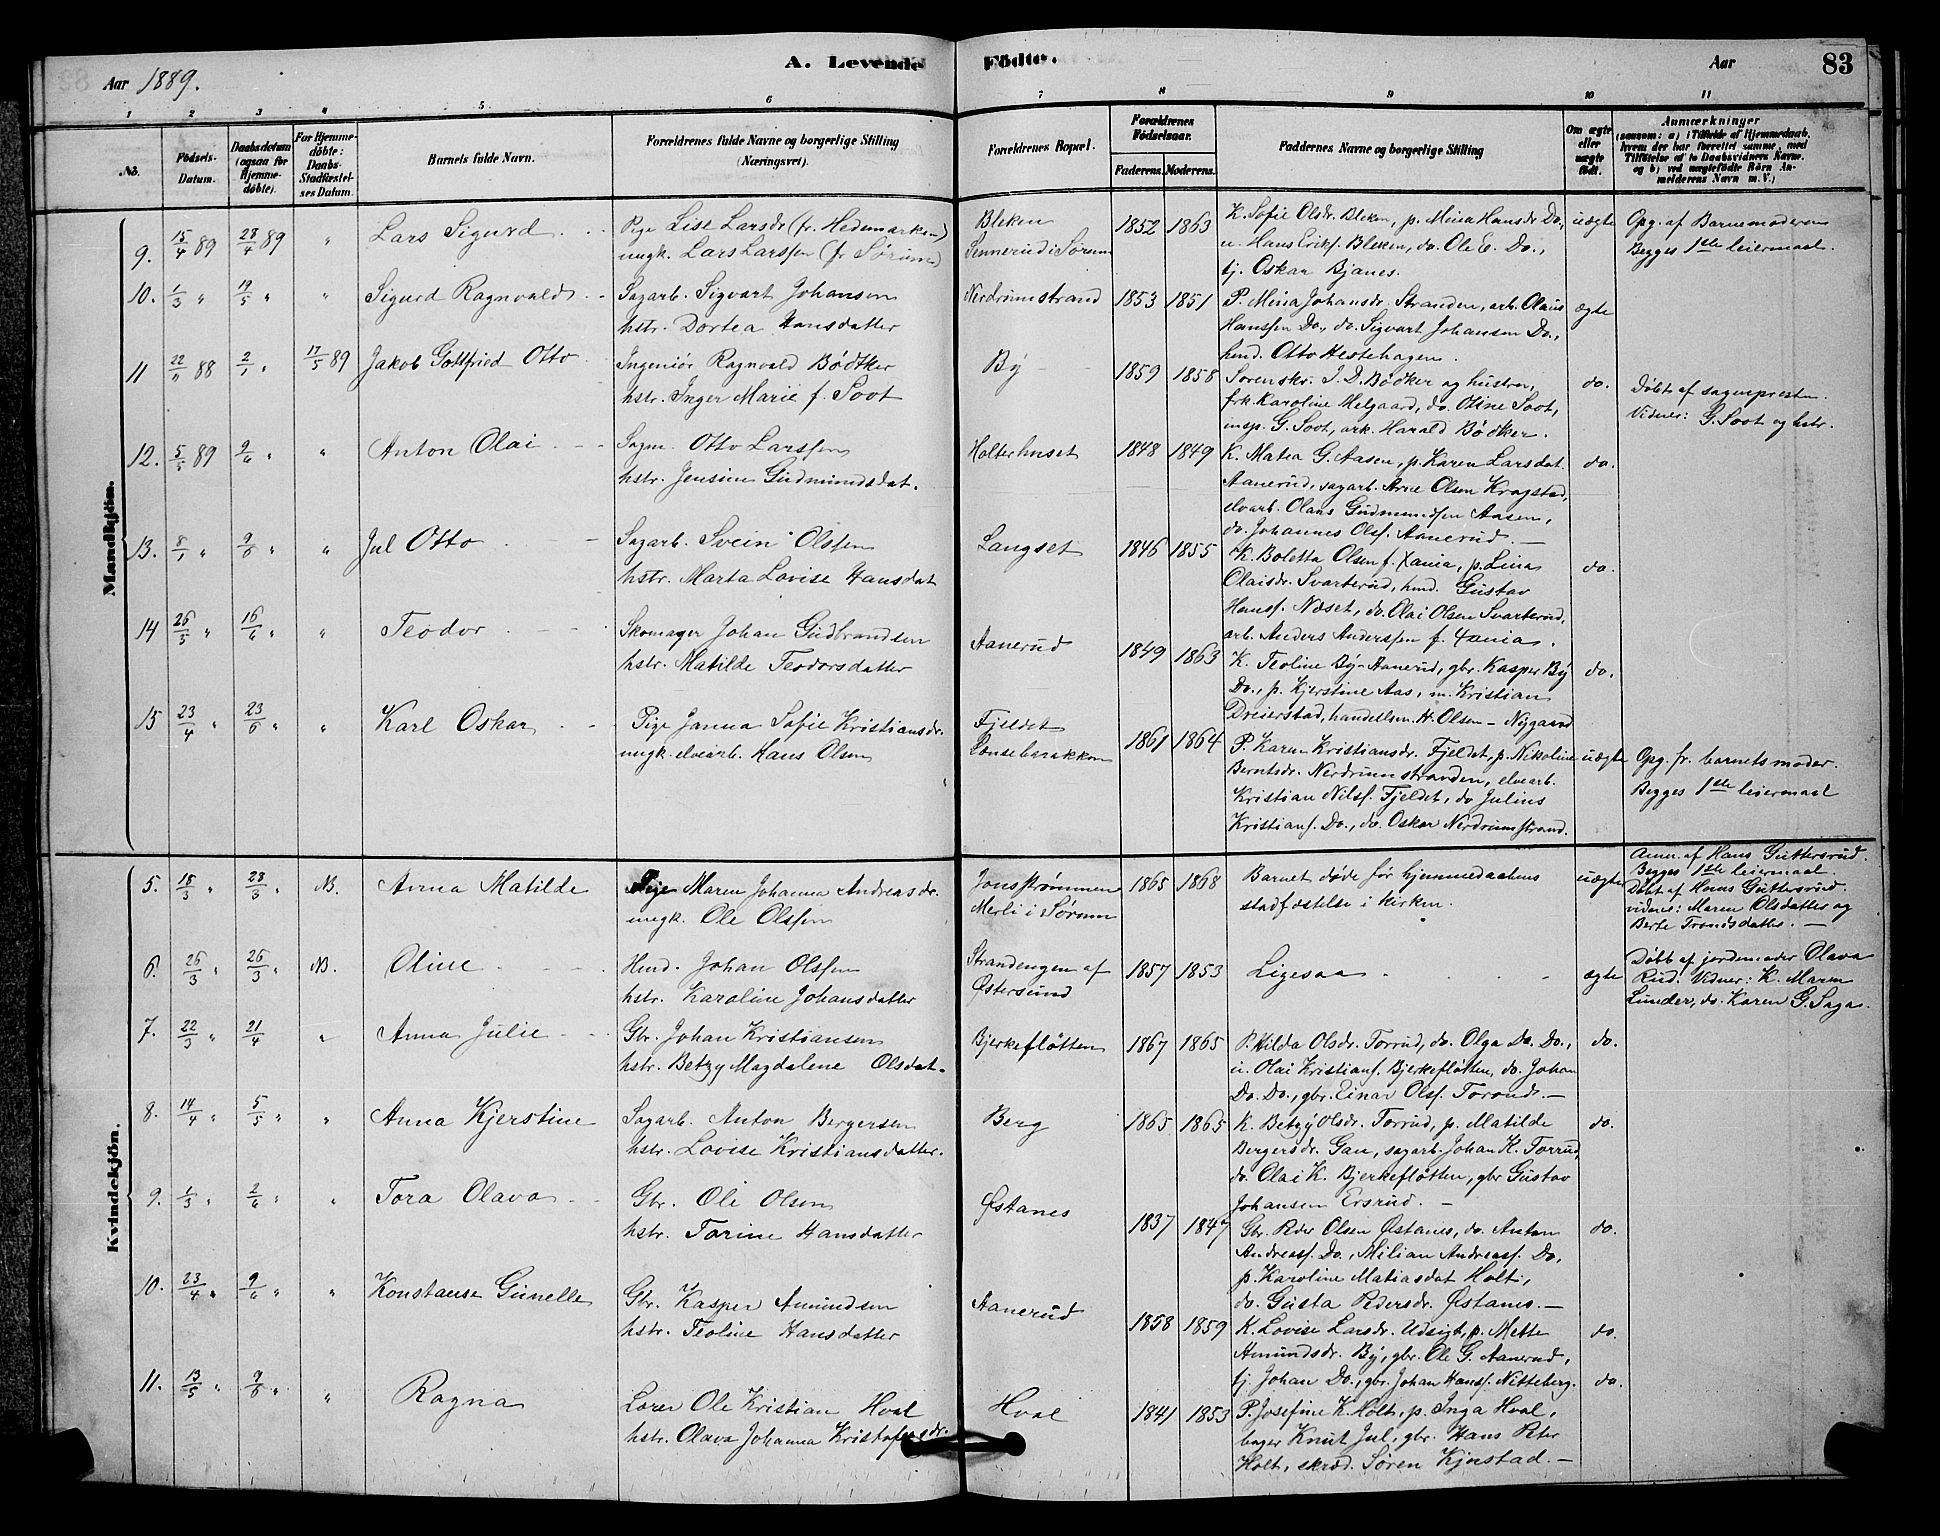 Aar 1889. A. Levende Födte. Aar 83
1 2 3 4 5 6 7 8 9 10 11
No. Födsels-Datum. Daabsdatum (ogsaa for Hjemme-döbte). For Hjemme-döbte: Daabs-Stadfæstel-ses Datum. Barnets fulde Navn. Forældrenes fulde Navne og borgerlige Stilling (Næringsvei). Forældrenes Bopæl. Forældrenes Födselsaar. Faderens. Moderens. Faddernes Navne og borgerlige Stilling Om ægte eller uægte födt. Anmærkninger (saasom: a) i Tilfælde af Hjemmedaab, hvem der har forrettet samme, med Tilföielse af to Daabsvidners Navne, og b) ved uægtefödte Börn An-melderens Navn m. V.)
Mandkjön.
9. 15/4 89 28/4 89 " Lars Sigurd Pige Lise Larsdr (fr. Hedemarken) Bleken 1852 1863 K. Sofie Olsdr. Bleken, p. Mina Hansdr. Do, uægte Opg. af Barnemoderen
ungk. Lars Larssen (fr Sørum) Sennerud i Sørum u. Hans Eriks. Bleken, do. Ole E. Do., Begges 1ste leiermaal.
tj. Oskar Bjanes.
10. 1/3 " 19/5 " " Sigurd Ragnvald Sagarb. Sigvart Johansen Nerdrumstrand 1853 1851 P. Mina Johansdr. Stranden, arb. Olaus ægte
hstr. Dortea Hansdatter Hanssen Do., do. Sigvart Johansen Do.,
hmd. Otto Hestehagen.
11 88 2/1 " 17/5 89 Jakob Gottfried Otto Ingeniør Ragnvald Bødtker By 1859 1858 Sorenskr. J. D. Bødker og hustru, do. Døbt af sogneprest.
hstr. Inger Marie f. Soot frk. Karoline Melgaard, do. Otine Soot, Vidner: G. Soot og hstr.
insp. G. Soot, ark. Harald Bødker.
12. 5/5 89 9/6 " " Anton Olai Sagm. Otto Larssen Holterhuset 1848 1849 K. Matea G. Aasen, p. Karen Larsdat. do.
hstr. Jensine Gudmundsdat. Aanerud, sagarb. Arne Olsen Kragstad,
elvarb. Olaus Gudmundsen Aasen,
do. Johannes Ols. Aanerud.
13. 8/1 " 9/6 " " Jul Otto Sagarb. Svein Olssen Langset 1846 1855 K. Boletta Olsen f. Xania, p. Lina do.
hstr. Marta Lovise Hansdat Olaisdr. Svarterud, hmd. Gustav
Hans. Næset, do. Olai Olsen Svarterud,
arb. Anders Anderssen f. Xania.
14 26/5 " 16/6 " " Teodor Skomager Johan Gudbrandsen Aanerud 1849 1863 K. Teoline By-Aanerud, gbr. Kasper By do.
hstr. Matilde Teodorsdatter Do., p. Kjerstine Aas, m. Kristian
Dreierstad, handelsm. H. Olsen - Nygaard
15 23/4 " 23/6 " " Karl Oskar Pige Janna Sofie Kristiansdr. Fjeldet 1861 1864 P. Karen Kristiansdr. Fjeldet, p. Nikoline uægte Opg. fr. barnets moder.
ungk. elvearb. Hans Olsen Lonsebarakken Berntsdr. Nerdrumstranden, elvarb. Begges 1ste leiermaal
Kristian Nils. Fjeldet, do Julius
Kristians. Do., do. Oskar Nerdrumstrand.
Kvindekjön.
5. 18/3 " 23/3 " NB. Anna Matilde Pige Maren Johanna Andreasdr. Jonsstrømmen 1865 1868 Barnet døde før hjemmedaabens uægte Anm. af Hans Guttersrud.
ungk. Ole Olssen Merli i Sørum stadfæstelse i kirken. Begges 1ste leiermaal.
Døbt af Hans Guttersrud.
vidner: Maren Olsdatter og
Berte Trondsdatter.
6. 26/3 " 26/3 " NB. Oline Hmd. Johan Olssen Strandengen af 1857 1853 Ligesaa ægte Døbt af jordemoder Olava
hstr. Karoline Johansdatter Østersund Rud. Vidner: K. Maren
Lunder, do. Karen G. Saga.
7. 22/3 " 21/4 " Anna Julie Gbr. Johan Kristiansen Bjerkefløtten 1867 1865 P. Hilda Olsdr. Torrud, do. Olga Do. Do., do.
hstr. Betzy Magdalene Olsdat. u. Olai Kristians. Bjerkefløtten, do. Johan
Do. Do., gbr. Einar Ols. Torrud.
8. 14/4 " 5/5 " " Anna Kjerstine Sagarb. Anton Bergersen Berg 1865 1865 K. Betzy Olsdr. Torrud, p. Matilde do.
hstr. Lovise Kristiansdatter. Bergersdr. Gan, sagarb. Johan K. Torrud,
do. Olai K. Bjerkefløtten, gbr Gustav
Johansen Ersrud.
9. 1/3 " 2/6 " " Tora Olava Gbr. Oli Olsen Østanes 1837 1847 Gbr. Peder Olsen Østanes, do. Anton do.
hstr. Torine Hansdatter Andreass. Do., Milian Andreass. Do,
p. Karoline Matiasdat Holt,
do. Gusta Pedersdr. Østanes.
10. 23/4 " 9/6 " " Konstanse Gunelle Gbr. Kasper Amundsen Aanerud 1858 1859 K. Lovise Larsdr. Udsigt, p. Mette do.
hstr. Teoline Hansdatter Amundsdr. By, gbr. Ole G. Aanerud,
tj. Johan Do., gbr. Johan Hans. Nitteberg.
11. 13/5 " 9/6 " " Ragna Lærer Ole Kristian Hval Hval 1841 1853 P. Josefine K. Holt, p. Inga Hval, do.
hstr. Olava Johanna Kristofersdr. bager Knut Jul, gbr. Hans Peter
Holt, skræd. Søren Kjerstad.